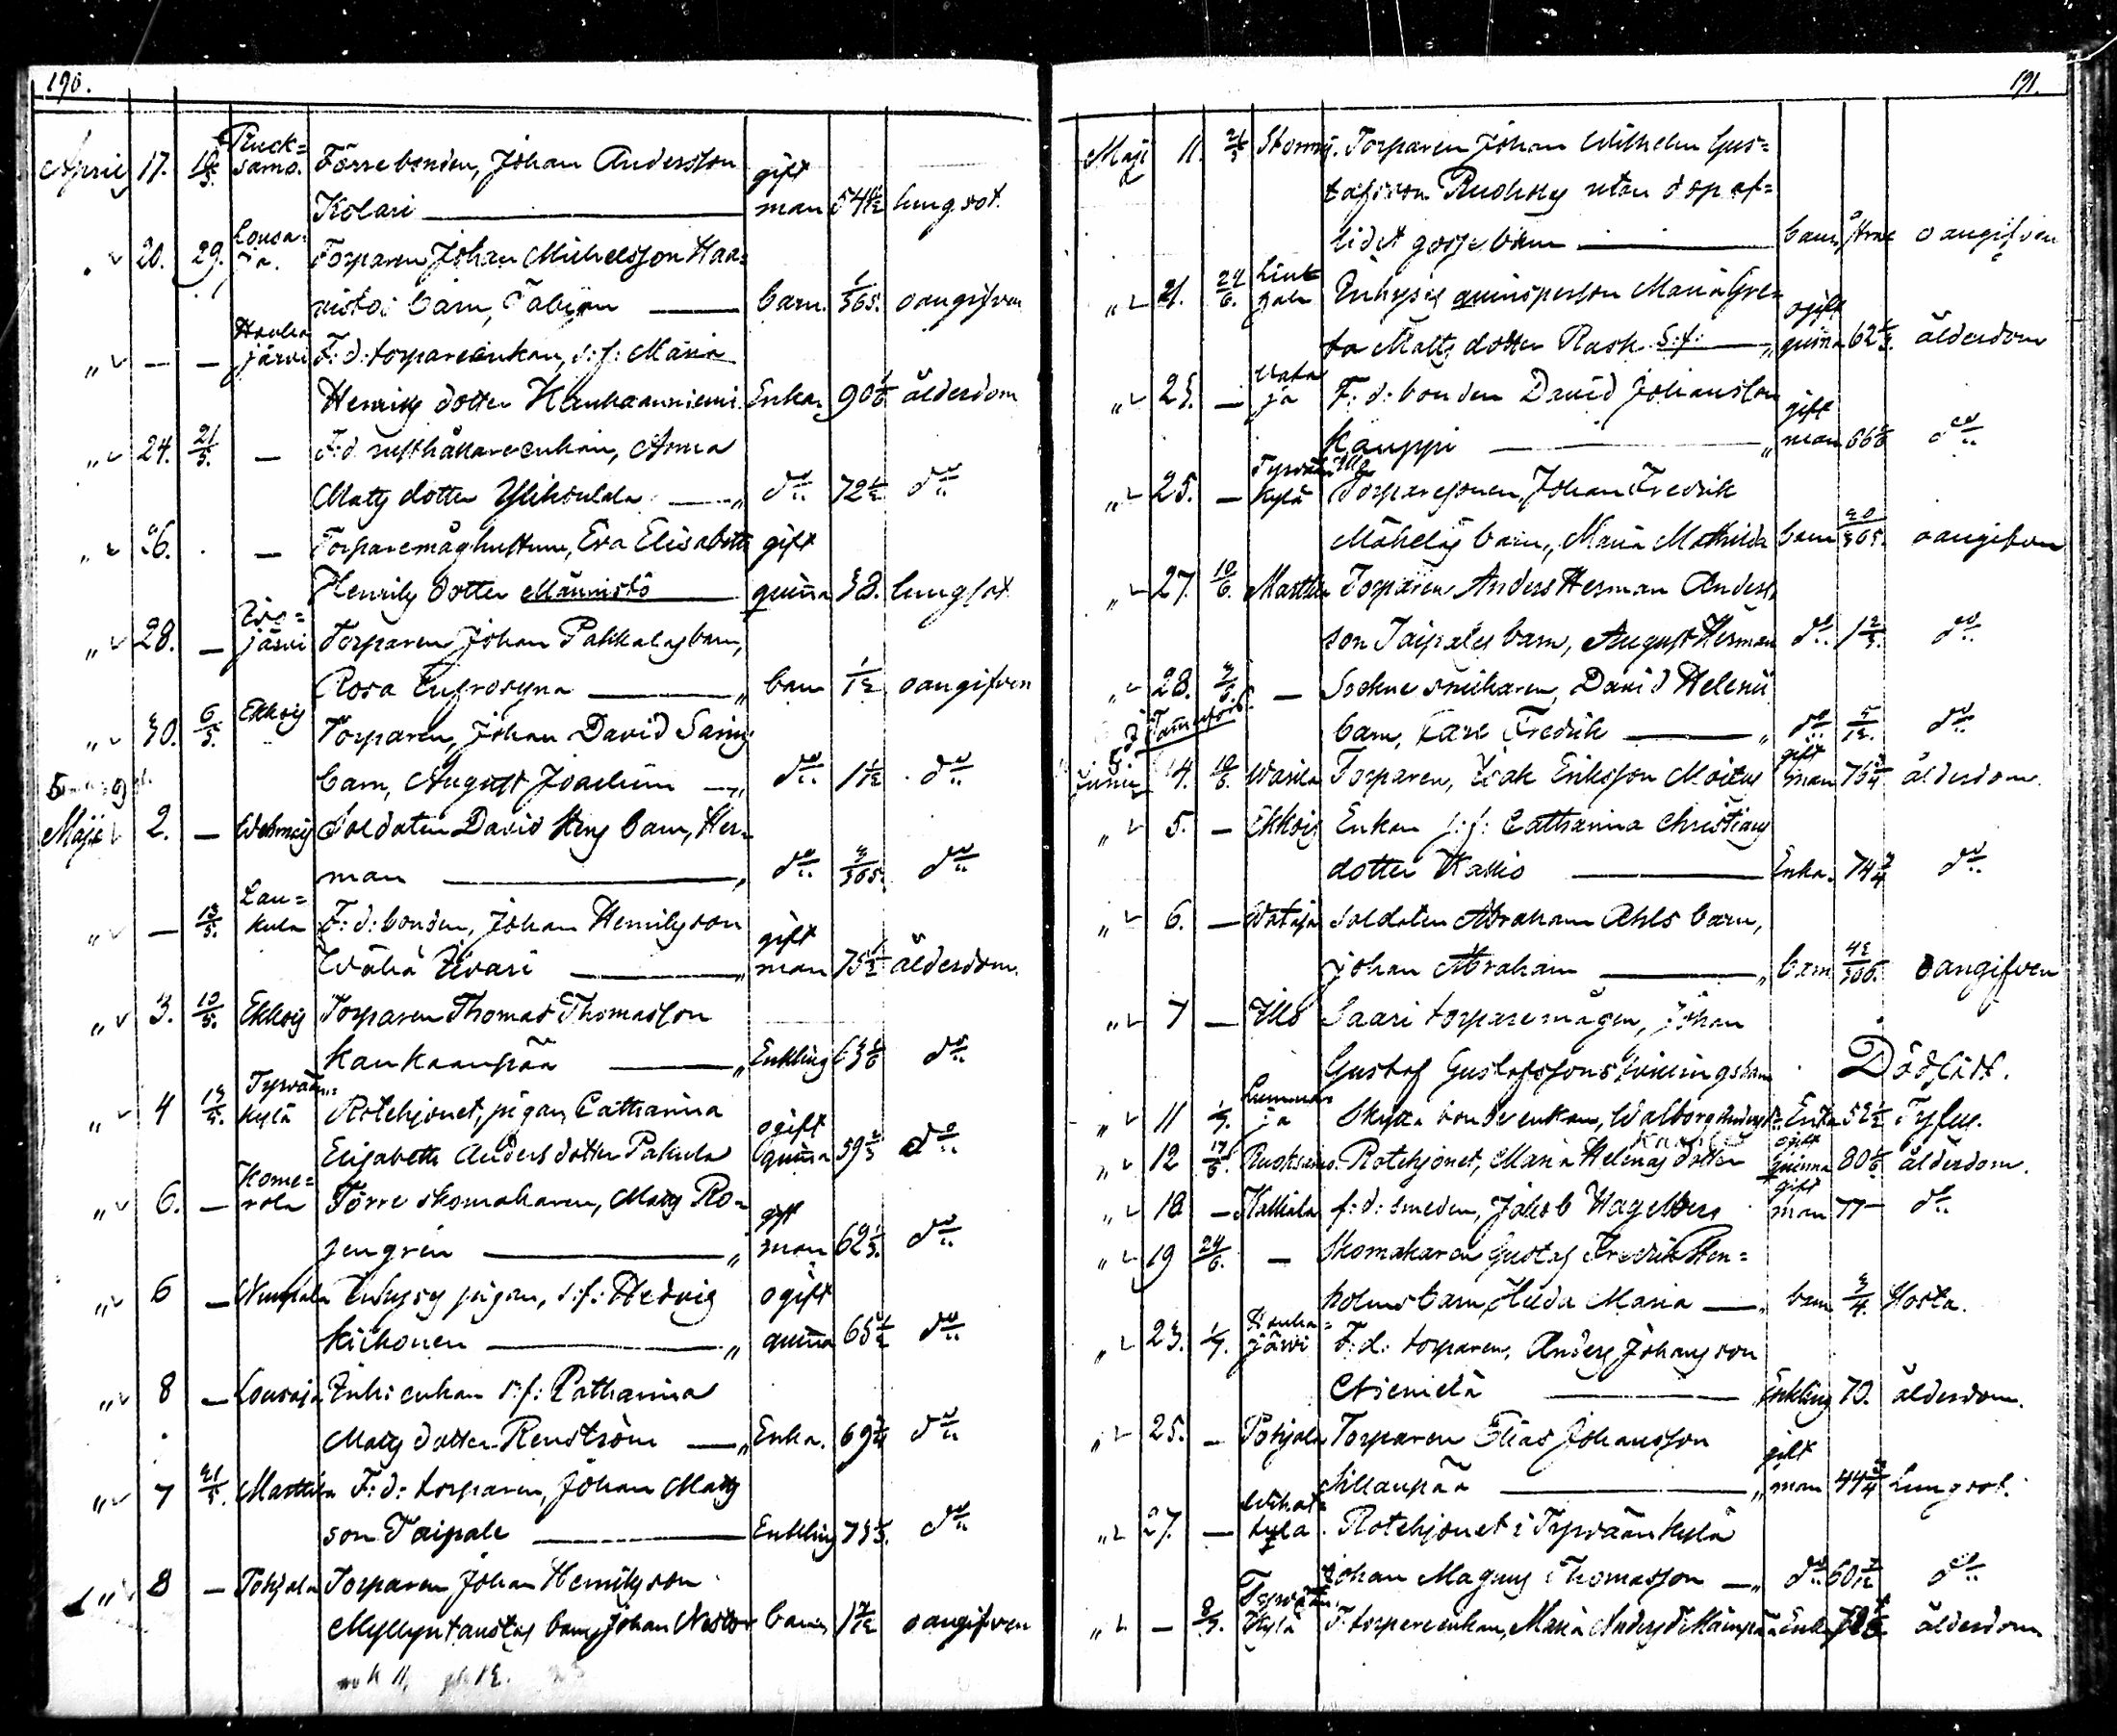 190.
April 17. 10/5. Ruck=
samo. Förre bonden, Johan Andersson gift
Kolari man 54 lungsot.
" 20. 29. Lousa=
ja. Torparen Johan Michelsson Haa=
visto: barn, Fabian barn. 1/365. oangifven
" — — Houha
järvi F: d: torpareenkan, s: f: Maria
Henriks dotter Kauhaanniemi Enka 90 1/6 ålderdom
" 24. 21/5. — F: d rusthållareenkan, Anna
Matts dotter Ylikoulala do 72 1/2 do
" 26. — Torparemåghustrun, Eva Elisabeth gift
Henriks dotter Männistö quinna 38. lungsot
" 28. — järvi Torparen Johan Pakkalas barn,
Rosa Eufrosyna barn 1/12 oangifven
" 30. 6/5. Ekkois Torparen, Johan David Saris
barn, August Joachim do 1 1/12 do
Maji 2. — Wehmais Soldaten David Stens barn, Her=
man do 3/365 do
" — 13/5. Lau=
kula F: d: bonden, Johan Henriksson gift
Wähä Uvari man 75 1/2 ålderdom.
" 3. 10/5. Ekkois Torparen Thomas Thomasson
Kankaanpää Enkling 63 1/6 do
" 4 13/5. Tyrvään=
kylä Rotehjonet, pigan, Catharina ogift
Elisabeth Anders dotter Pakula quinna 59 2/3 do
" 6. — Kome=
rola Förre skomakaren, Matts Ro= gift
sengrén man 62 1/3. do
" 6 — Nuupala Inhyses pigan, s: f: Hedvig ogift
Kiikonen quinna 65 1/2 do
" 8 — Lousaja Inhs enkan s: f: Catharina
Matts dotter Renström Enka. 69 3/4 do
" 7 21/5. Marttila F: d: torparen, Johan Matts
son Taipale Enkling 73 1/3. do
" 8 — Pohjala Torparen Johan Henriksson
Myllyntaustas barn Johan Nestor barn 1 7/12 oangifven
191.
Maji 11. 21/5 Stormi. Torparen Johan Wilhelm Gus=
tafsson Ruohos utan dop af=
lidet gossebarn barn oangifven
" 21. 24/6. Liut
jala Inhyses quinsperson Maria Gre= ogift
ta Matts dotter Rask S: f: quinna 62 1/3. ålderdom
" 23. — Wata
ja F: d: bonden David Johansson gift
Kauppi man 66 5/6 do
" 25. — Tyrvään
kylä Torparesonen, Johan Fredrik
Mäheläs barn, Maria Mathilda barn 20/365. oangifven
" 27. 10/6. Marttila Torparen Anders Herman Anders=
son Taipales barn, August Herman do 1 2/3. do
" 28. 3/6. — Sockne snickaren, David Helenii
barn, Karl Fredrik do 5/12. do
Junii 4. 10/6. Warila Torparen, Isak Eriksson Moitus gift
man 76 3/4 ålderdom.
" 5. — Ekkois Enkan s: f: Catharina Christians
dotter Kallio Enka. 74 3/4 do
" 6. — Wataja Soldaten Abraham Ahls barn,
Johan Abraham barn 42/366. oangifven
" 7 — Illo Saari torparemågen, Johan
Gustaf Gustafssons tvillingsbarn Dödfödt.
" 11 1/7. Lumma
ja Skyttä bondeenkan, Walborg Anders d. Enka 52 1/2 Tyfus.
" 12 17/6. Ruoksamo. Rotehjonet, Maria Helena dotter ogift
quinna 80 1/6 ålderdom.
" 18 — Kalliala f: d: smeden, Jakob Hagelberg gift
man 77 do
" 19 24/6. — Skomakaren Gustaf Fredrik Sten=
holms barn, Hilda Maria barn 3/4. Hosta.
" 23. 1/7. Houha=
järvi F: d: torparen, Anders Johansson
Niemelä Enkling 70. ålderdom.
" 25. — Pohjala Torparen Elias Johansson gift
Sillanpää man 44 3/4 Lungsot.
" 27. —
kylä. Rotehjonet i Tyrväänkylä
Johan Magnus Thomasson do 60 7/12 do
" — 8/7. Tyrvään
kylä F: torpareenkan, Maria Anders d. Mäenpää Enka ålderdom